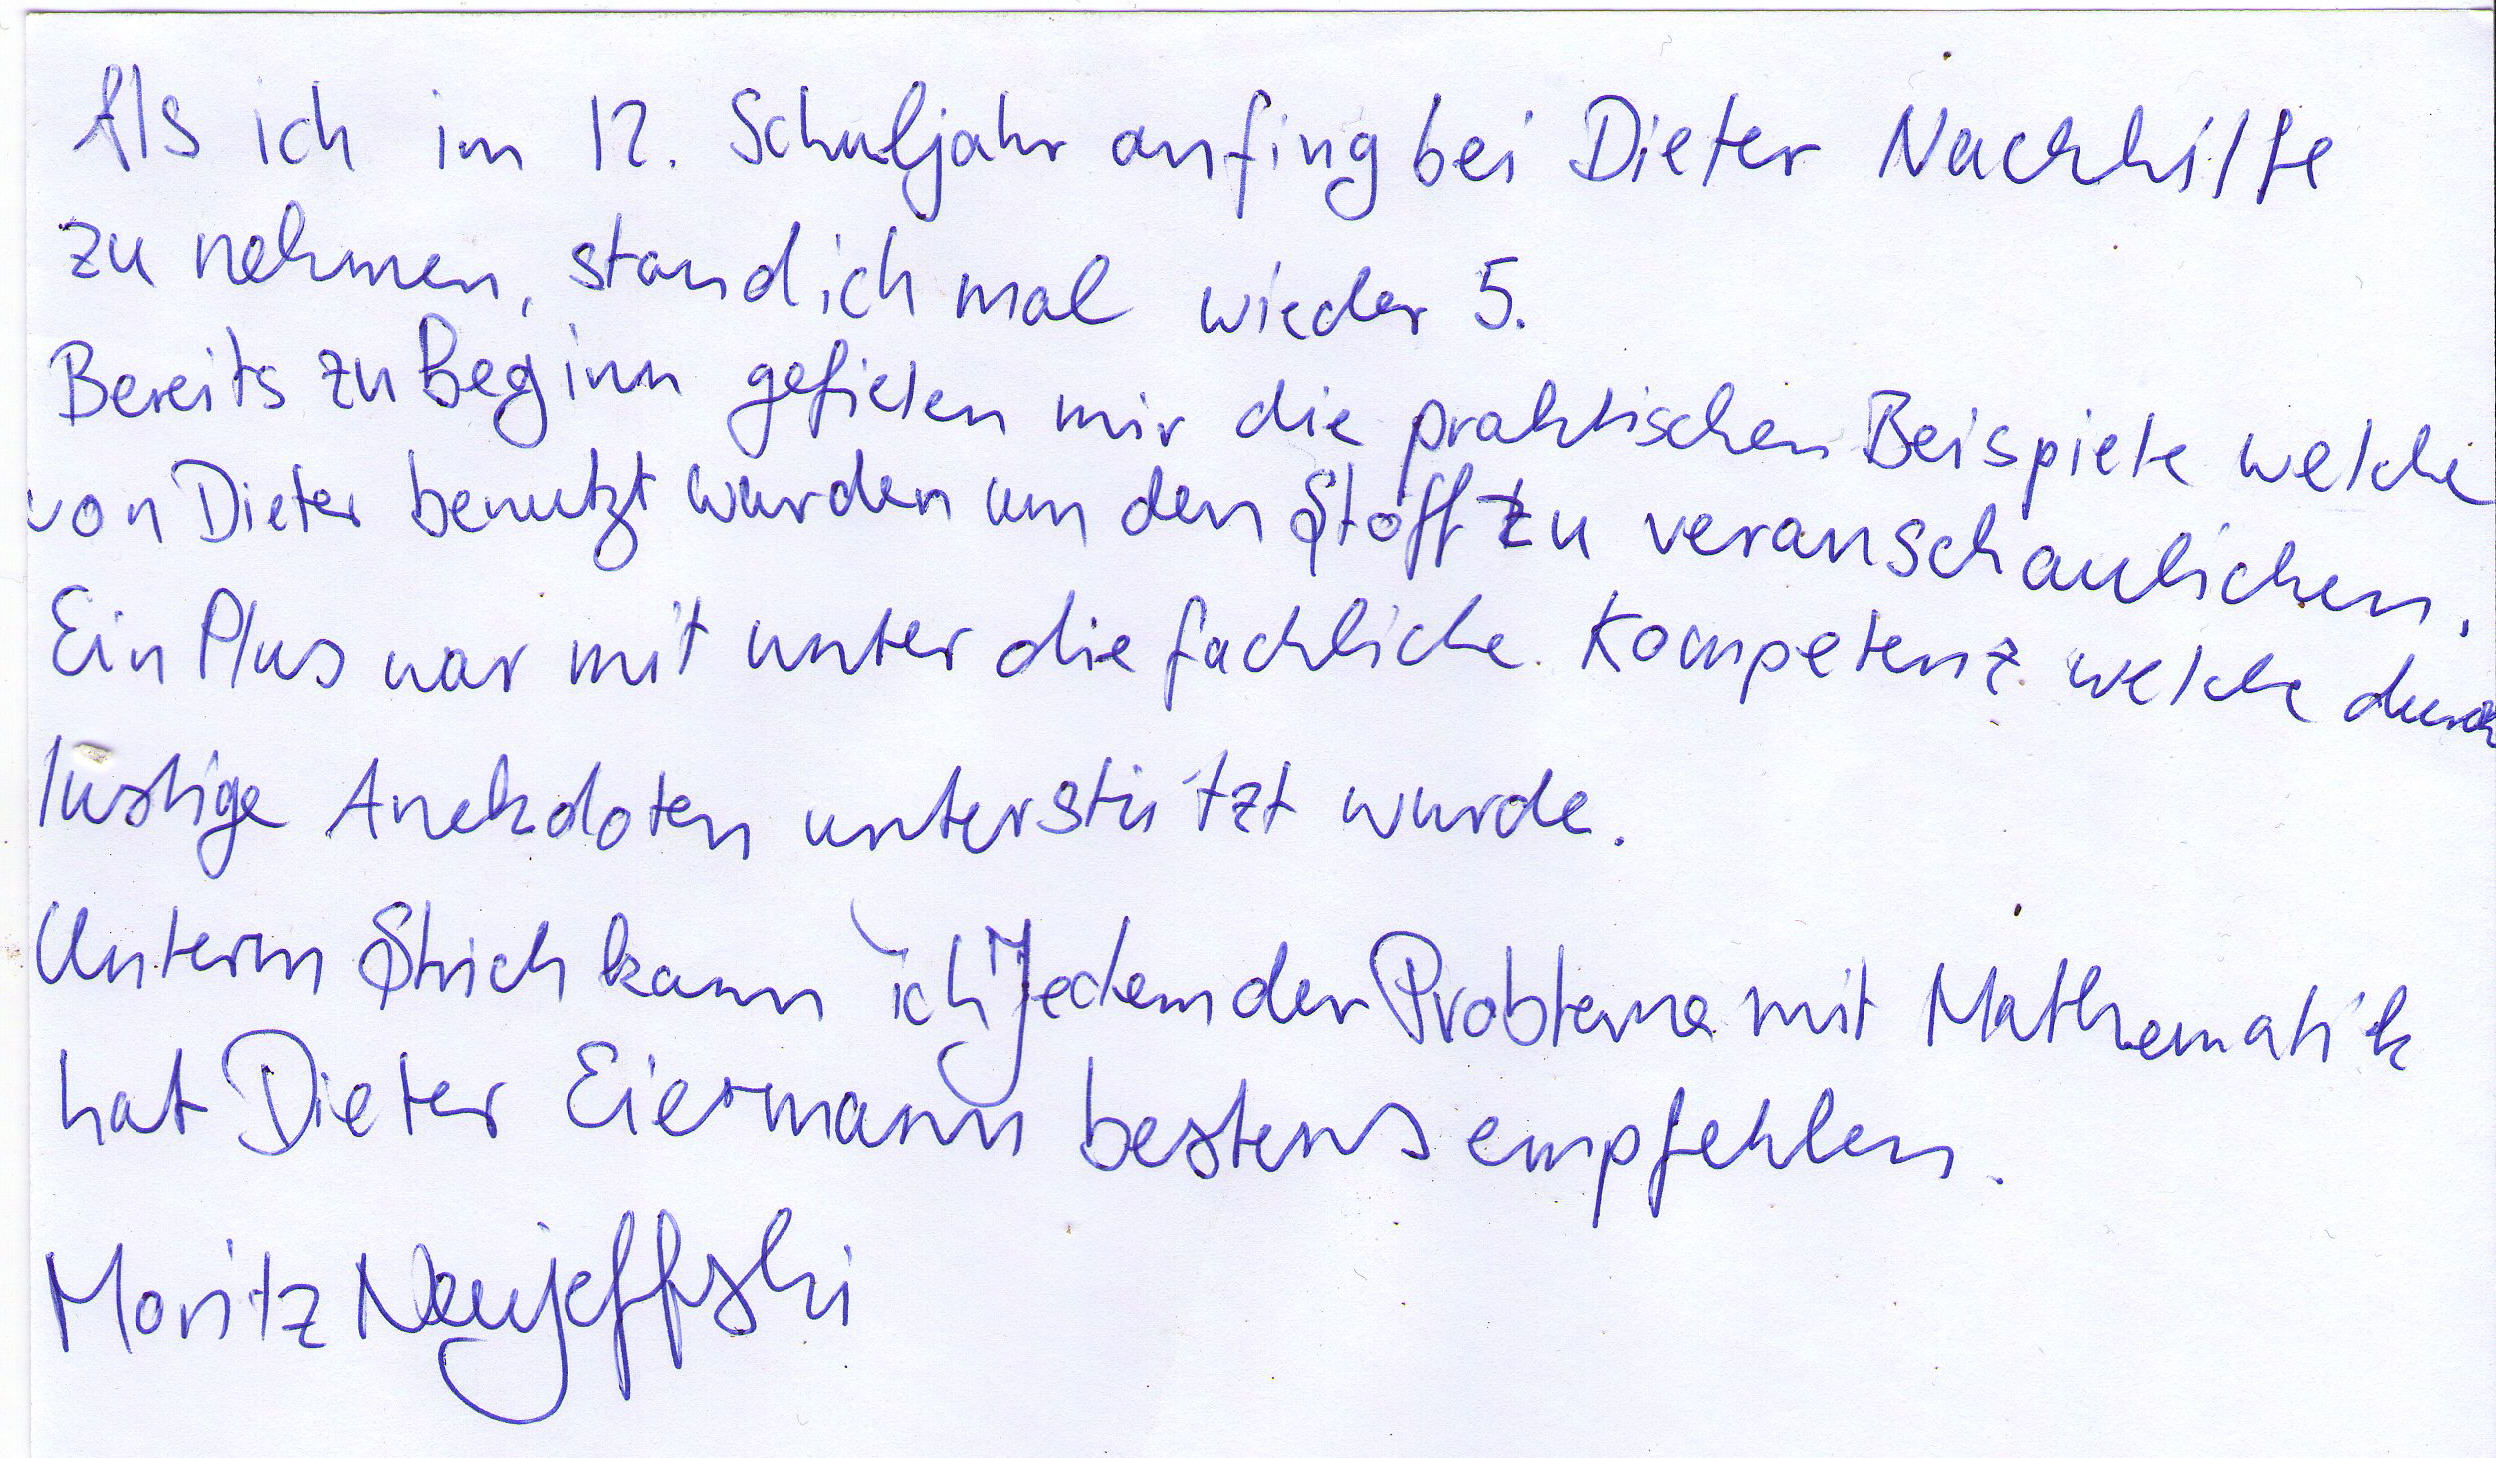 Als ich im 12. Schuljahr anfing bei Dieter Nachhilfe
zu nehmen, stand ich mal wieder 5.
Bereits zu Beginn gefielen mir die praktischen Beispiele welche
von Dieter benutzt wurden um den Stoff zu veranschaulichen.
Ein Plus war mit unter die fachliche Kompetenz welche durch
lustige Anekdoten unterstützt wurde.
Unterm Strich kann ich Jedem der Probleme mit Mathematik
hat Dieter Eiermann bestens empfehlen.
Moritz